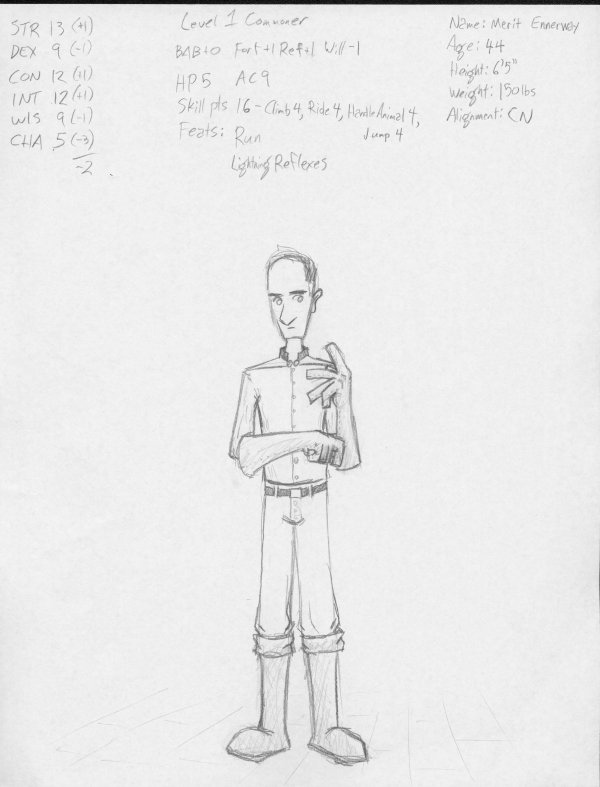 STR 13 (+1)
DEX 9 (-1)
CON 12 (+1)
INT 12 (+1)
WIS 9 (-1)
CHA 5 (-3)
-2
Level 1 Commoner
BAB+0 Fort+1 Ref+1 Will-1
HP5 AC9
Skill pts 16 - Climb 4, Ride 4, Handle Animal 4,
Jump 4
Feats: Run
Lightning Reflexes
Name: Merit Ennerway
Age: 44
Height: 6'5"
Weight: 150lbs
Alignment: CN